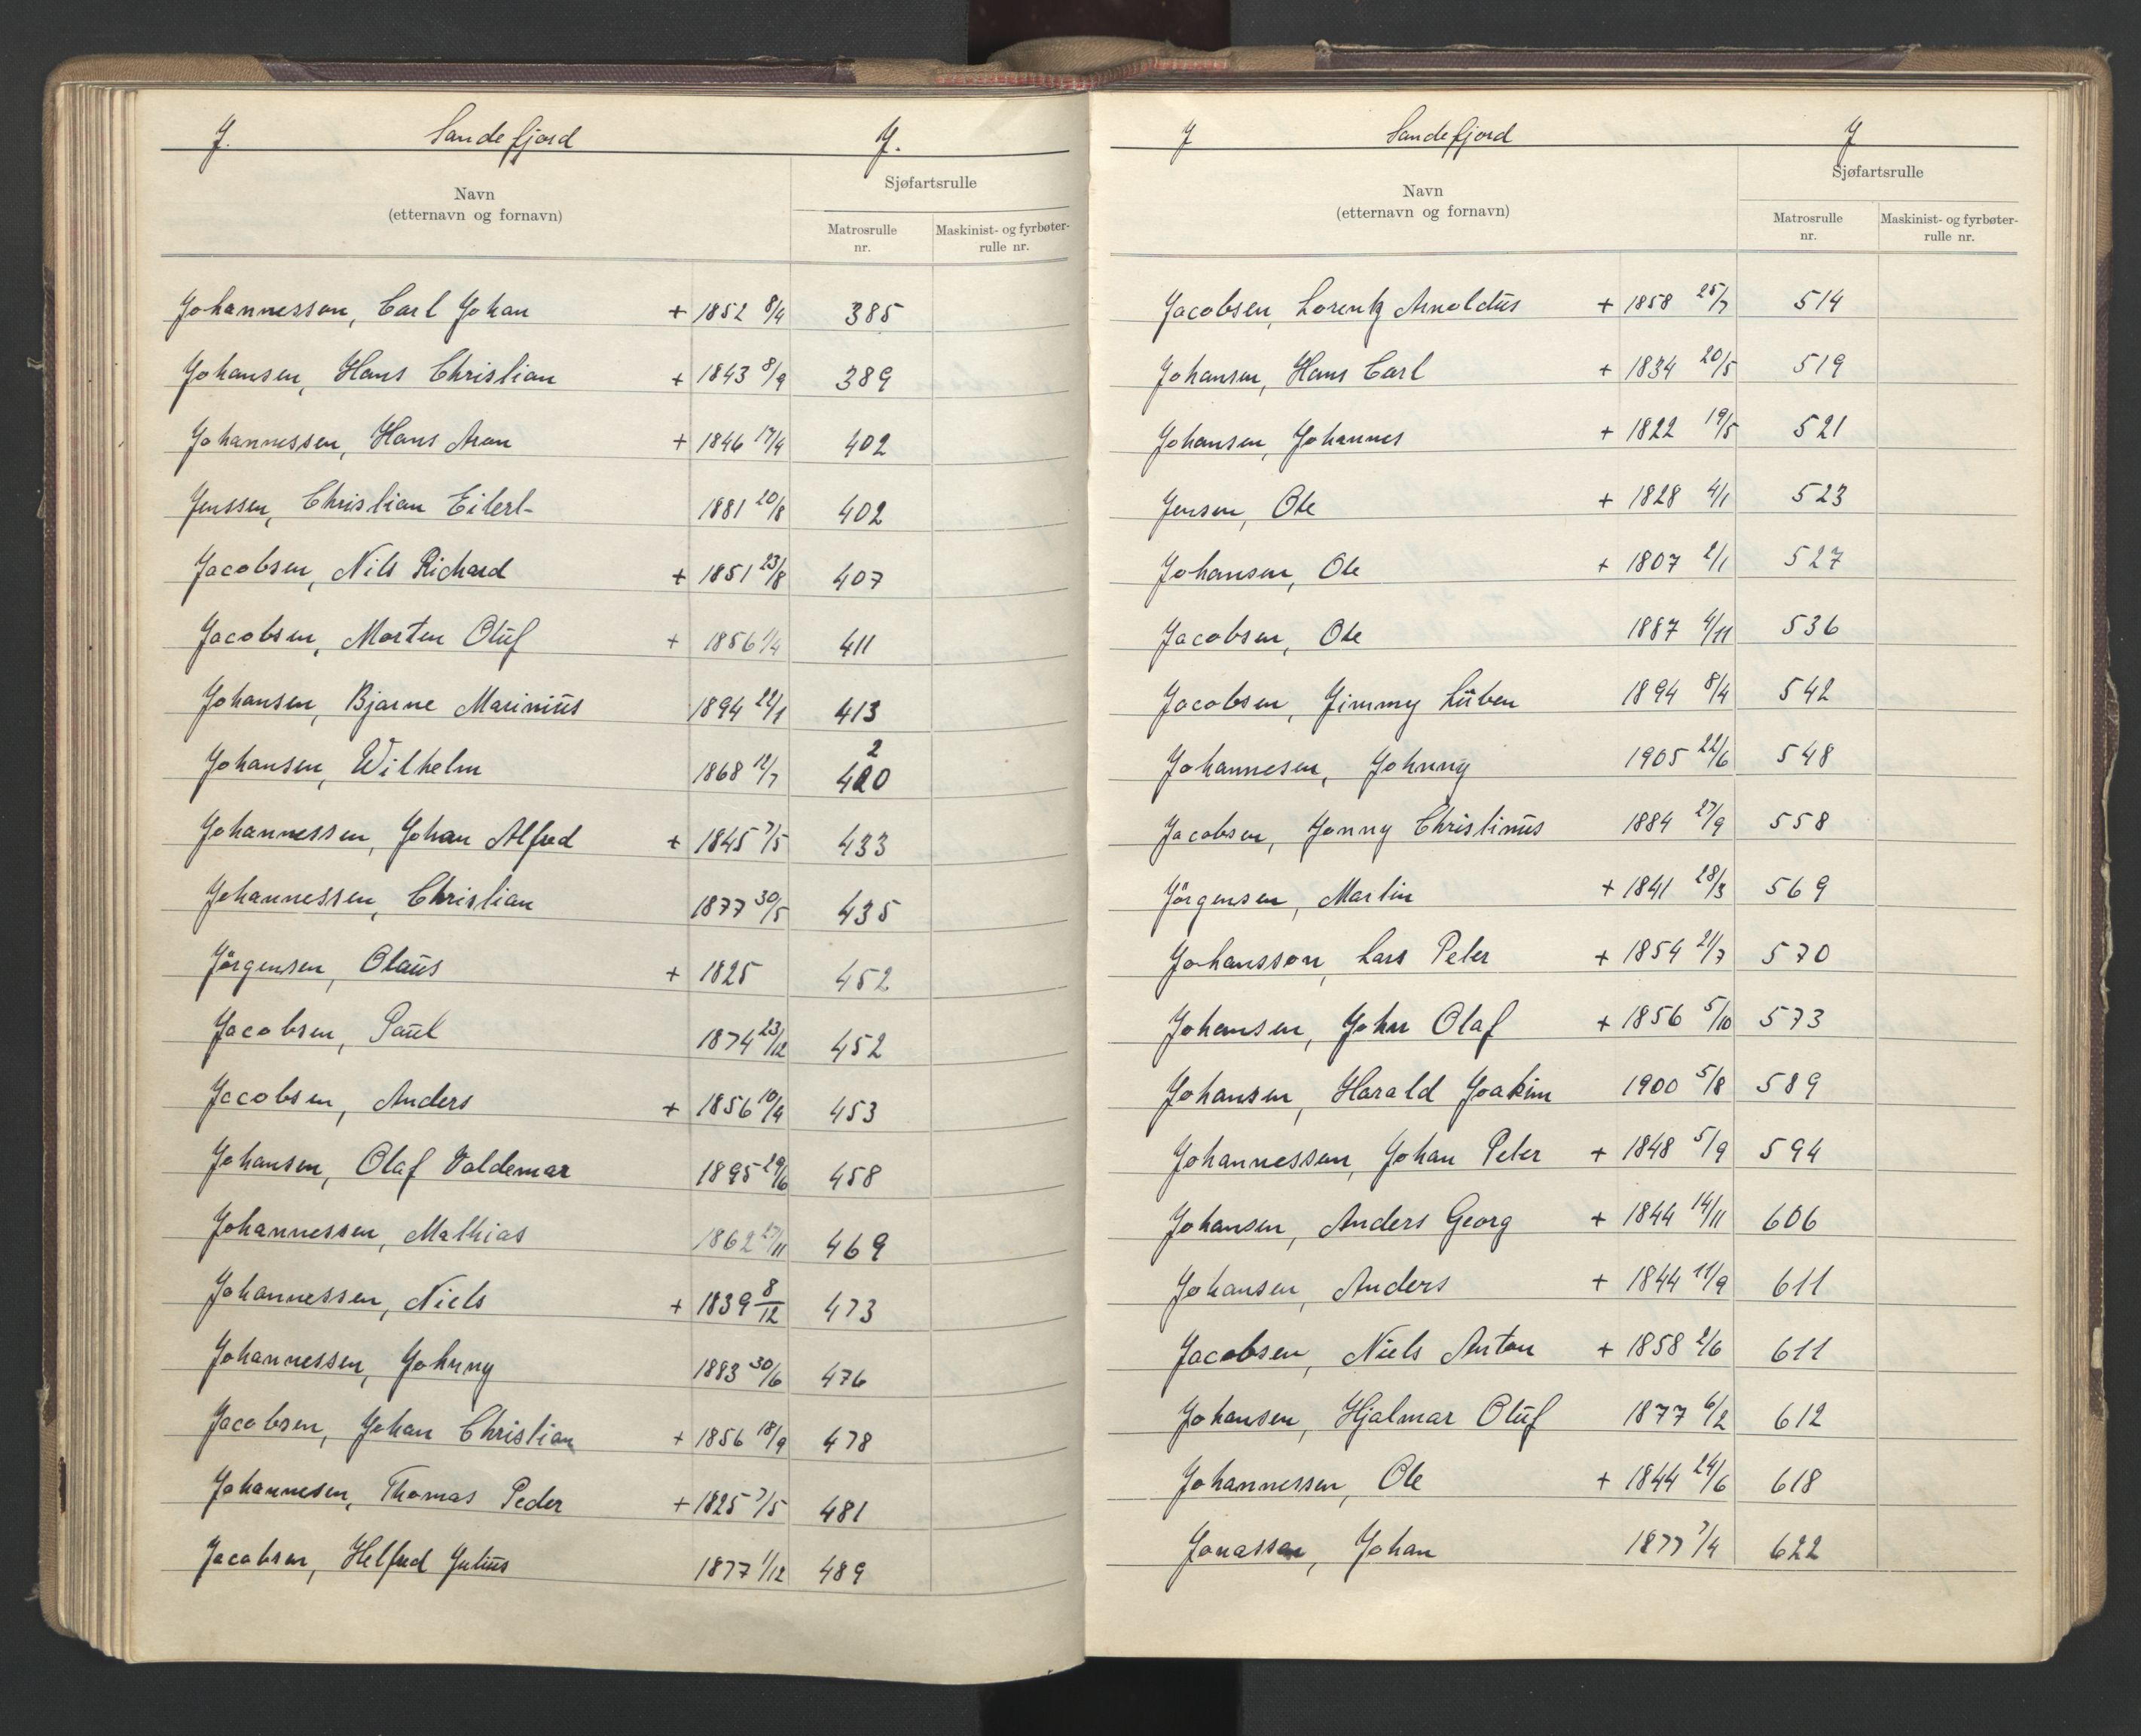 J. Sandefjord J.
Navn
(etternavn og fornavn)
Sjøfartsrulle
Matrosrulle nr.
Maskinist- og fyrbøter-rulle nr.
Johannessen, Carl Johan + 1852 8/4 385
Johansen, Hans Christian + 1843 8/9 389
Johannessen, Hans Aron + 1846 17/4 402
Jenssen, Christian Eilert- 1881 20/8 402
Jacobsen, Nils Richard + 1851 23/8 407
Jacobsen, Morten Oluf + 1856 1/4 411
Johansen, Bjarne Marinius 1894 22/1 413
Johansen, Wilhelm 1868 12/7 420
Johannessen, Johan Alfred + 1845 7/5 433
Johannessen, Christian 1877 30/5 435
Jörgensen, Olaus + 1825 452
Jacobsen, Paul 1874 23/12 452
Jacobsen, Anders + 1856 10/4 453
Johansen, Olaf Valdemar 1895 29/6 458
Johannessen, Mathias 1862 27/11 469
Johannessen, Niels + 1839 8/12 473
Johannessen, Johnny 1883 30/6 476
Jacobsen, Johan Christian + 1856 18/9 478
Johannesen, Thomas Peder + 1825 7/5 481
Jacobsen, Helfred Julius 1877 1/12 489
J Sandefjord J
Navn
(etternavn og fornavn)
Sjøfartsrulle
Matrosrulle nr.
Maskinist- og fyrbøter-rulle nr.
Jacobsen, Lorentz Arnoldus + 1858 25/7 514
Johansen, Hans Carl + 1834 20/5 519
Johansen, Johannes + 1822 19/5 521
Jensen, Ole + 1828 4/1 523
Johansen, Ole + 1807 2/1 527
Jacobsen, Ole 1887 4/11 536
Jacobsen, Jimmy Lüben 1894 8/4 542
Johannesen, Johnny 1905 22/6 548
Jacobsen, Jonny Christinus 1884 27/9 558
Jörgensen, Martin + 1841 28/3 569
Johansson, Lars Peter + 1854 21/7 570
Johansen, John Olaf + 1856 5/10 573
Johansen, Harald Joakim 1900 5/8 589
Johannessen, Johan Peter + 1848 5/9 594
Johansen, Anders Georg + 1844 14/11 606
Johansen, Anders + 1844 11/9 611
Jacobsen, Niels Anton + 1858 2/6 611
Johansen, Hjalmar Oluf 1877 6/2 612
Johannessen, Ole + 1844 24/6 618
Jonassen, Johan 1877 7/4 622